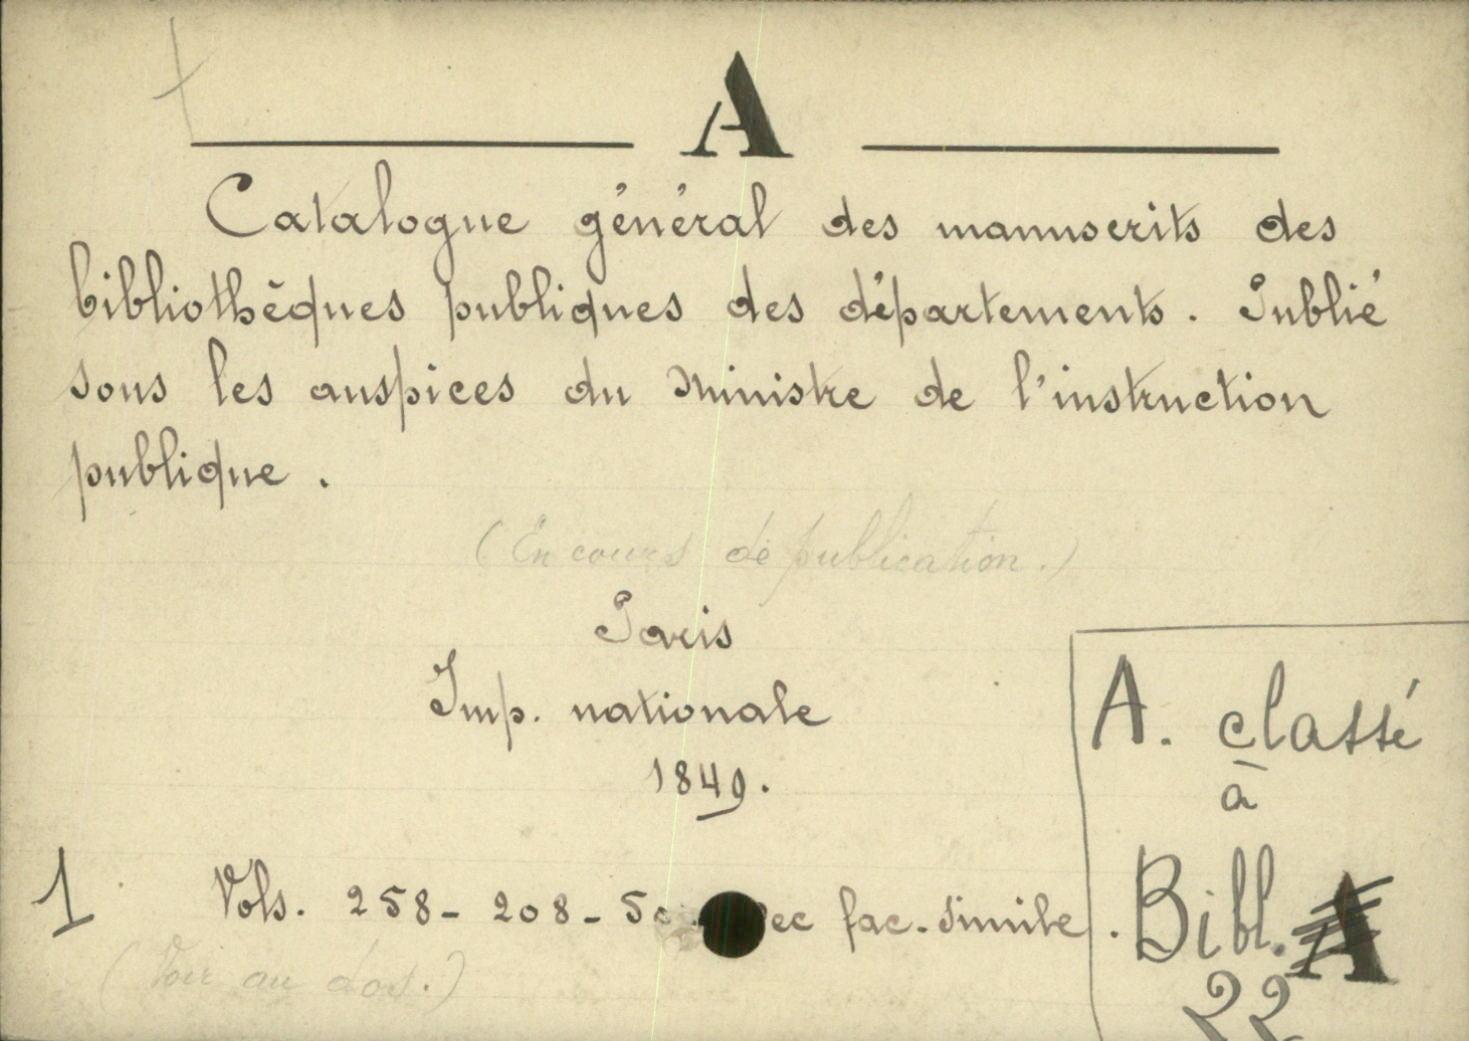 A
Catalogue général des manuscrits des
bibliothèques publiques des départements. Publié
sous les auspices du Ministre de l'instruction
publique.
(En cours de publication.)
Paris
Imp. nationale
1849.
1 Vols. 258-208-50 fac-simile.
(Voir au dos.)
A. classé
à
Bibl. A
22